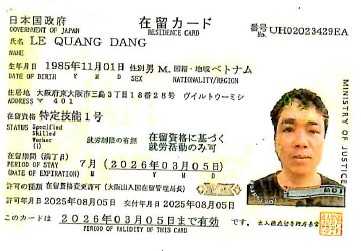 日本国政府 在留カード 番号 UH02023429EA
GOVERNMENT OF JAPAN RESIDENCE CARD No.
氏名 LE QUANG DANG
NAME
生年月日 1985年11月01日 性別 男 M. 国籍・地域 ベトナム
DATE OF BIRTH Y M D SEX NATIONALITY/REGION
住居地 大阪府東大阪市三島3丁目18番28号 ヴイルトゥーミシ
ADDRESS マ 401
在留資格 特定技能1号
STATUS Specified
Skilled
Worker
(i)
就労制限の有無 在留資格に基づく
就労活動のみ可
在留期間(満了日) 7月 (2026年03月05日)
PERIOD OF STAY
(DATE OF EXPIRATION) M Y M D
許可の種類 在留資格変更許可 (大阪出入国在留管理局長)
許可年月日 2025年08月05日 交付年月日 2025年08月05日
このカードは 2026年03月05日まで有効 です。
PERIOD OF VALIDITY OF THIS CARD
MINISTRY OF JUSTICE
出入国在留管理庁長官